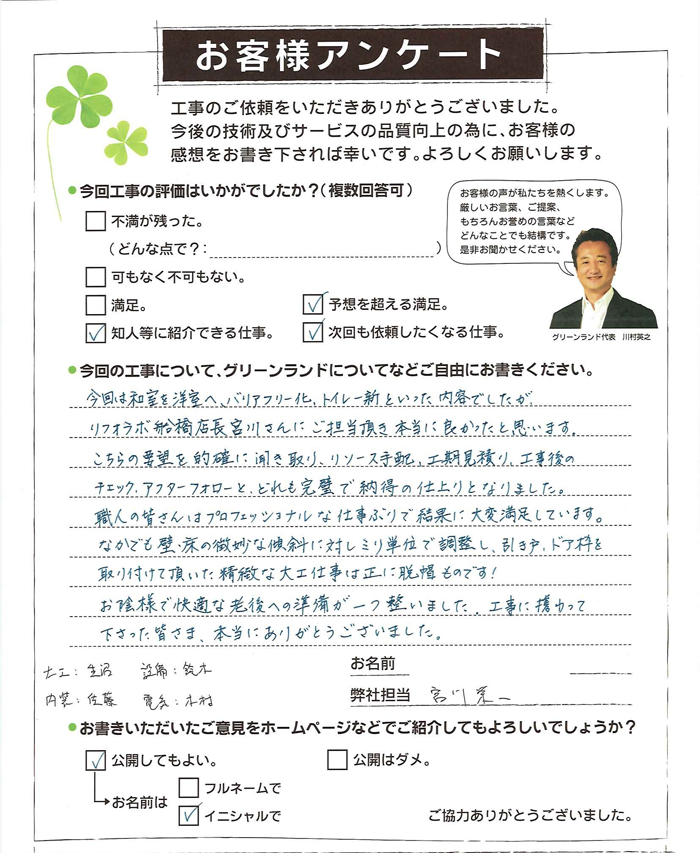 お客様アンケート
工事のご依頼をいただきありがとうございました。
今後の技術及びサービスの品質向上の為に、お客様の
感想をお書き下されば幸いです。よろしくお願いします。
今回工事の評価はいかがでしたか?(複数回答可)
不満が残った。
(どんな点で?: )
可もなく不可もない。
満足。
予想を超える満足。
知人等に紹介できる仕事。
次回も依頼したくなる仕事。
お客様の声が私たちを熱くします。
厳しいお言葉、ご提案、
もちろんお誉めの言葉など
どんなことでも結構です。
是非お聞かせください。
グリーンランド代表 川村英之
今回の工事について、グリーンランドについてなどご自由にお書きください。
今回は和室を洋室へ、バリアフリー化、トイレ一新といった内容でしたが、
リフォラボ船橋店長宮川さんにご担当頂き本当に良かったと思います。
こちらの要望を的確に聞き取り、リソース手配、工期見積り、工事後の
チェック、アフターフォローと、どれも完璧で納得の仕上りとなりました。
職人の皆さんはプロフェッショナルな仕事ぶりで結果に大変満足しています。
なかでも壁・床の微妙な傾斜に対しミリ単位で調整し、引き戸、ドア枠を
取り付けて頂いた精緻な大工仕事は正に脱帽ものです!
お陰様で快適な老後への準備が一つ整いました。工事に携わって
下さった皆さま、本当にありがとうございました。
大工: 生沼 設備: 鈴木
内装: 佐藤 電気: 木村
お名前
弊社担当 宮川
お書きいただいたご意見をホームページなどでご紹介してもよろしいでしょうか?
公開してもよい。
公開はダメ。
お名前は
フルネームで
イニシャルで
ご協力ありがとうございました。